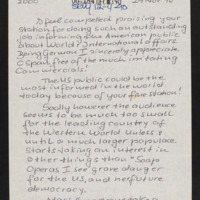 I feel compelled praising your
Station for doing such an outstanding
job informing the American public
about World/International affairs.
Being German I sincerely appreciate
free of the much irritating
Commercials!
The US public could be the
most informed in the world
today because of your fine station!
Sadly however the audience
seems to be much too small
for the leading country of
the Western World. Unless &
until a much larger populace
Starts taking an interest in
other things than "Soap
Operas I see grave danger
for the US, and her future
democracy.